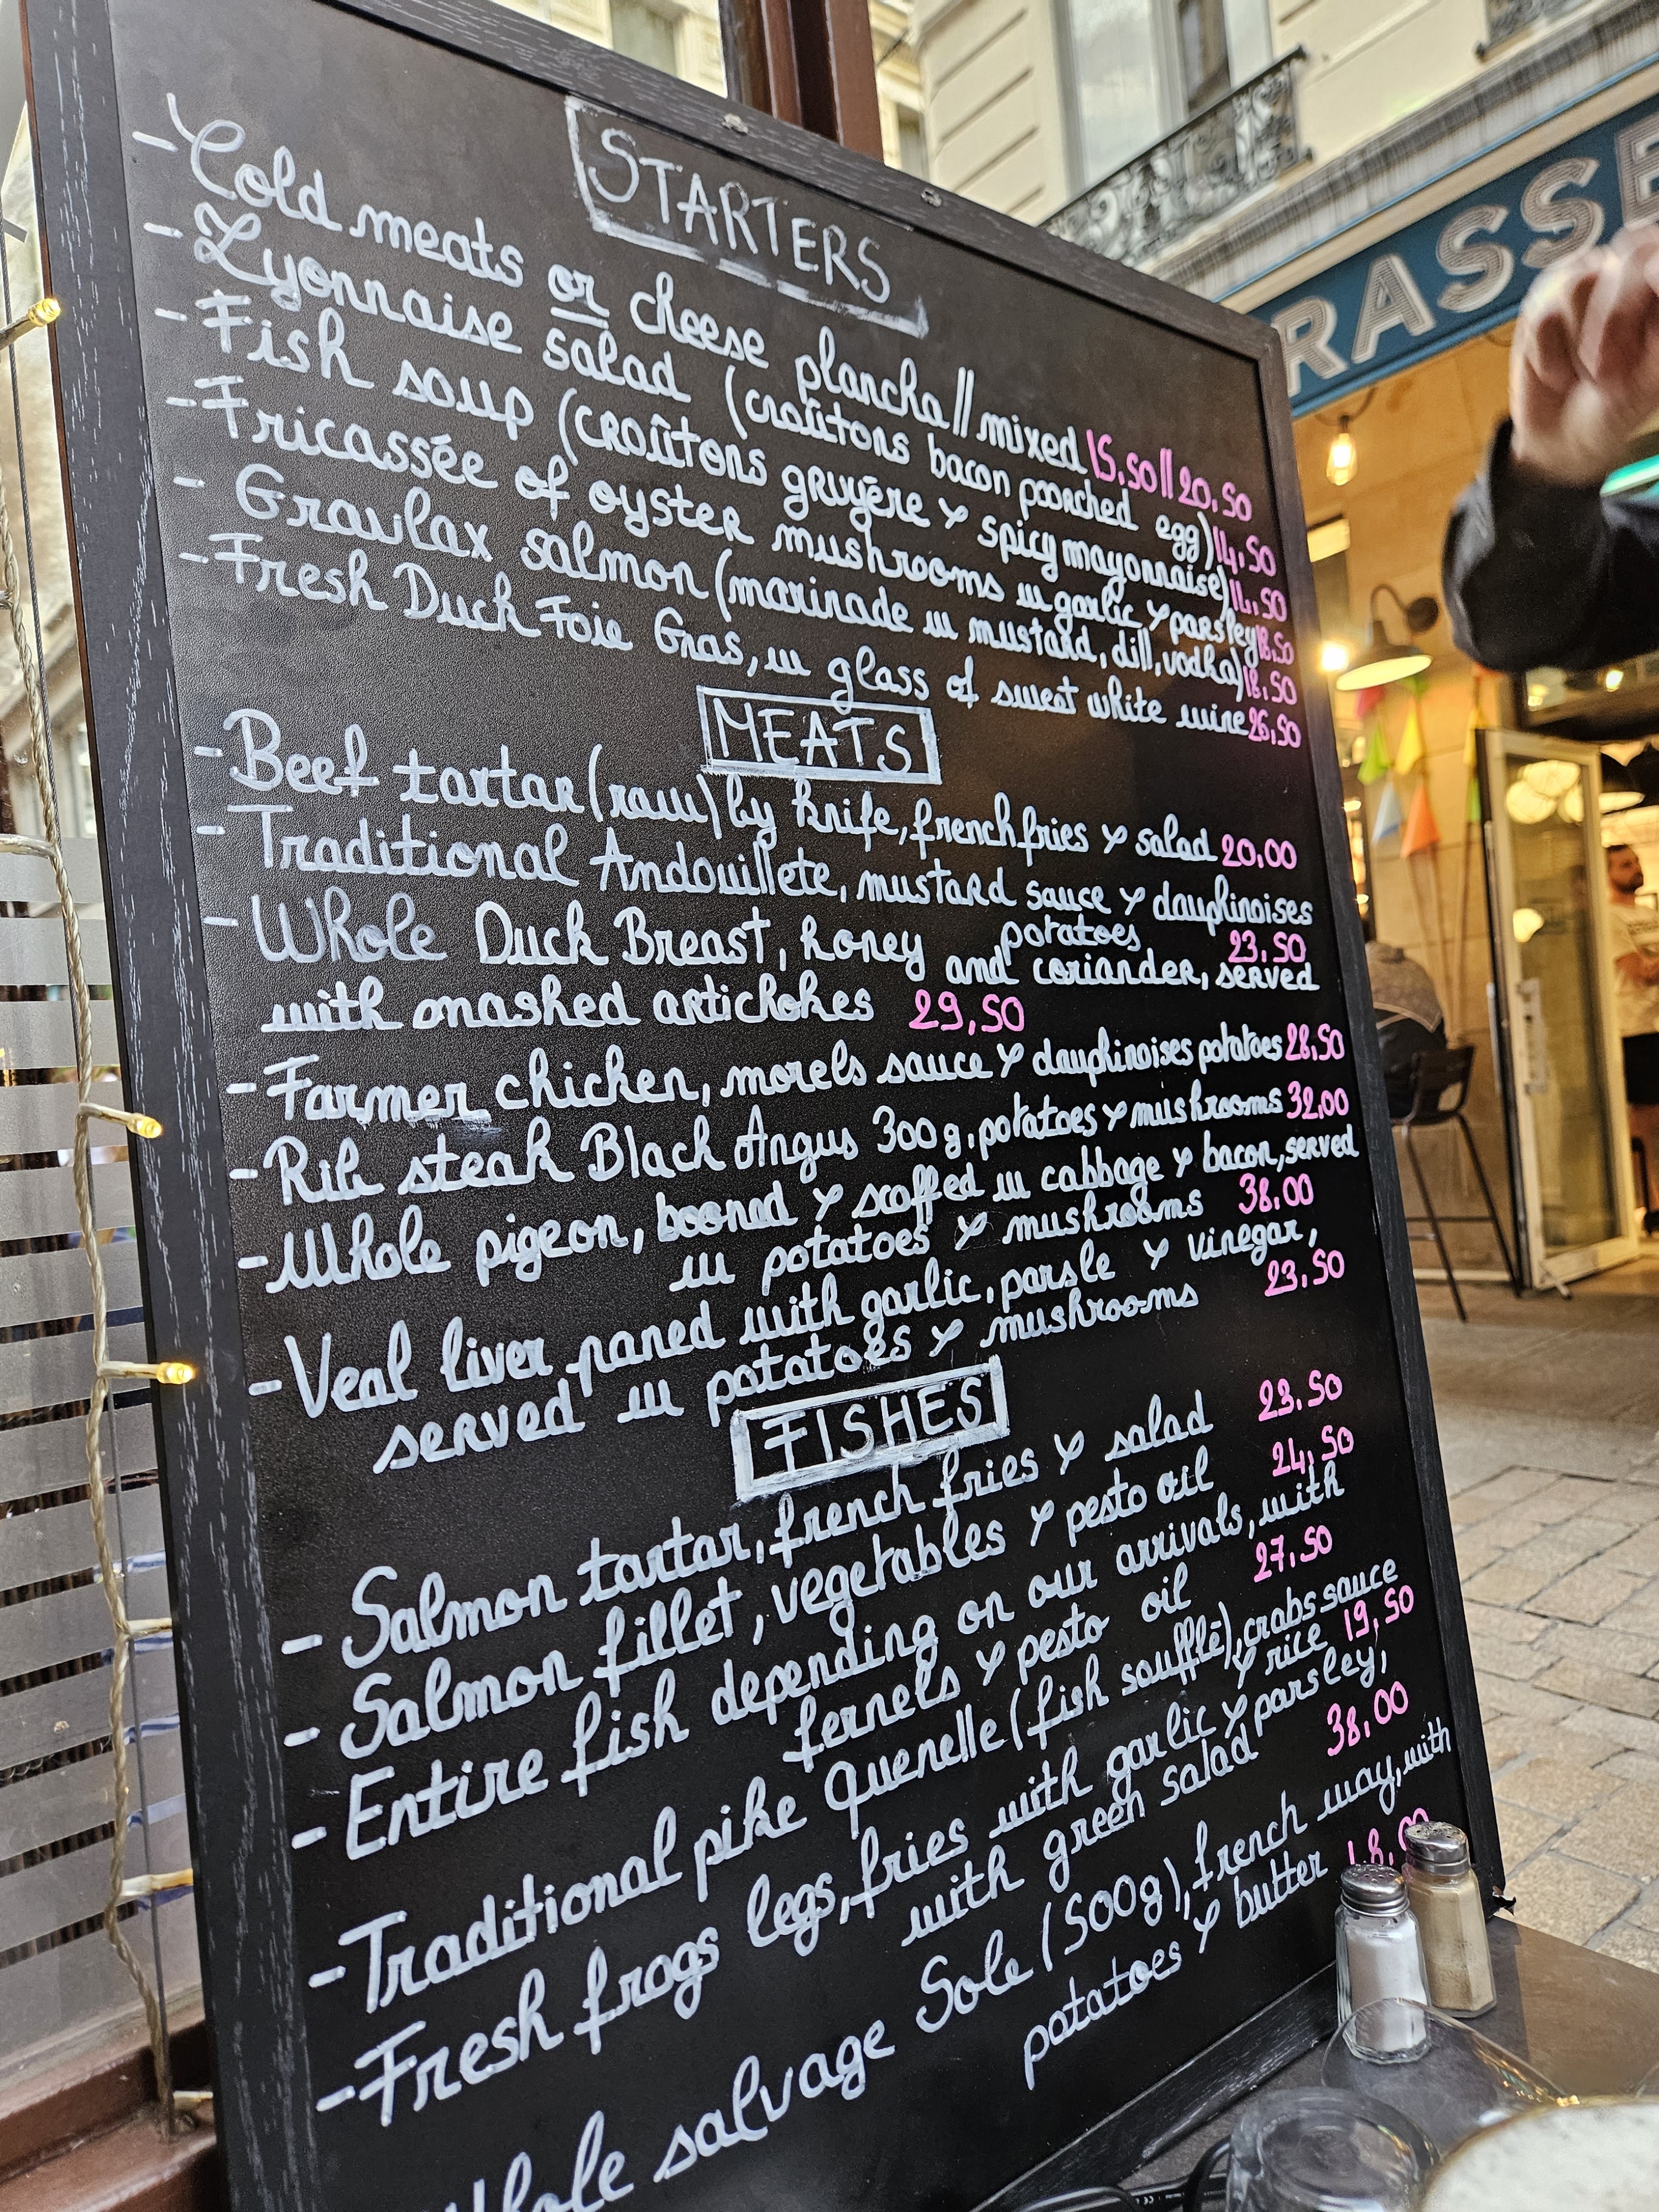 STARTERS
- Cold meats or cheese plancha // mixed 15.50 // 20.50
- Lyonnaise salad (croûtons bacon poached egg) 14.50
- Fish soup (croûtons gruyère & spicy mayonnaise) 14.50
- Fricassée of oyster mushrooms w garlic & parsley 18.50
- Gravlax salmon (marinade w mustard, dill, vodka) 18.50
- Fresh Duck Foie Gras, w glass of sweet white wine 26.50
MEATS
- Beef tartar (raw) by knife, french fries & salad 20.00
- Traditional Andouillete, mustard sauce & dauphinoises
potatoes 23.50
- Whole Duck Breast, honey and coriander, served
with mashed artichokes 29,50
- Farmer chicken, morels sauce & dauphinoises potatoes 28.50
- Rib steak Black Angus 300g, potatoes & mushrooms 32.00
- Whole pigeon, booned & scoffed w cabbage & bacon, served
w potatoes & mushrooms 38.00
- Veal liver paned with garlic, parsle & vinegar,
served w potatoes & mushrooms 23.50
FISHES
- Salmon tartar, french fries & salad 23.50
- Salmon fillet, vegetables & pesto oil 24.50
- Entire fish depending on our arrivals, with
fernels & pesto oil 27.50
- Traditional pike Quenelle (fish soufflé), crabs sauce
& rice 19.50
- Fresh frogs legs, fries with garlic & parsley,
with green salad 38.00
Whole salvage Sole (500g), french way, with
potatoes & butter
RASSE